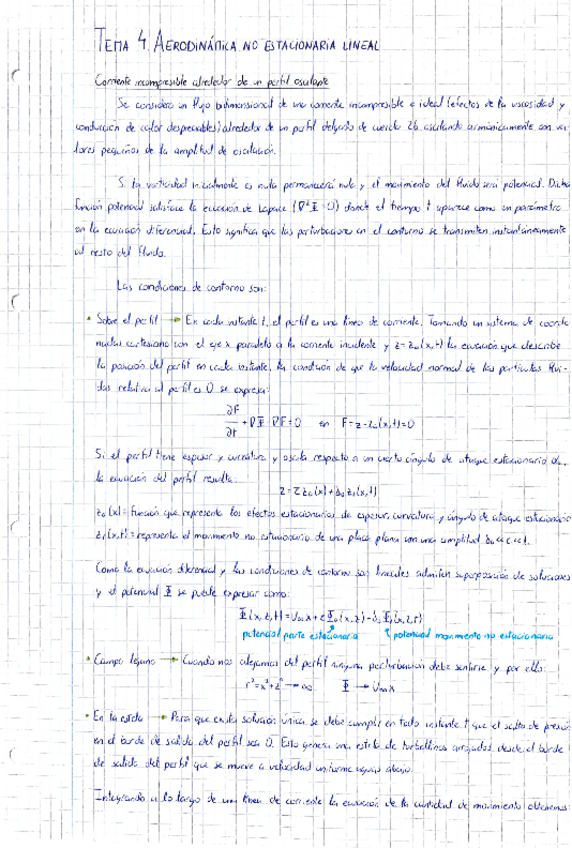 TEMA 4. AERODINÁMICA NO ESTACIONARIA LINEAL
Corriente incompresible alrededor de un perfil oscilante
Se considera un flujo bidimensional de una corriente incompresible e ideal (efectos de la viscosidad y
conducción de calor despreciables) alrededor de un perfil delgado de cuerda 2b oscilando armónicamente con va-
lores pequeños de la amplitud de oscilación.
Si la vorticidad inicialmente es nula permanecerá nula y el movimiento del fluido será potencial. Dicha
función potencial satisface la ecuación de Laplace (∇²Φ=0) donde el tiempo t aparece como un parámetro
en la ecuación diferencial. Esto significa que las perturbaciones en el contorno se transmiten instantáneamente
al resto del fluido.
Las condiciones de contorno son:
• Sobre el perfil → En cada instante t, el perfil es una línea de corriente. Tomando un sistema de coorde-
nadas cartesiano con el eje x paralelo a la corriente incidente y z=z₀(x,t) la ecuación que describe
la posición del perfil en cada instante, la condición de que la velocidad normal de las partículas flui-
das relativa al perfil es 0 se expresa:
∂F/∂t + ∇Φ·∇F=0 en F=z-z₀(x,t)=0
Si el perfil tiene espesor y curvatura y oscila respecto a un cierto ángulo de ataque estacionario
la ecuación del perfil resulta:
representa los efectos estacionarios de espesor, curvatura y ángulo de ataque estacionario
representa el movimiento no estacionario de una placa plana con una amplitud
Como la ecuación diferencial y las condiciones de contorno son lineales admiten superposición de soluciones
y el potencial Φ se puede expresar como:
potencial parte estacionaria potencial movimiento no estacionario
• Campo lejano → Cuando nos alejamos del perfil ninguna perturbación debe sentirse y por ello:
r²=x²+z² → ∞ Φ → U∞x
• En la estela → Para que exista solución única se debe cumplir en todo instante t que el salto de presión
en el borde de salida del perfil sea 0. Esto genera una estela de torbellinos arrojados desde el borde
de salida del perfil que se mueve a velocidad uniforme aguas abajo.
Integrando a lo largo de una línea de corriente la ecuación de la cantidad de movimiento obtenemos: